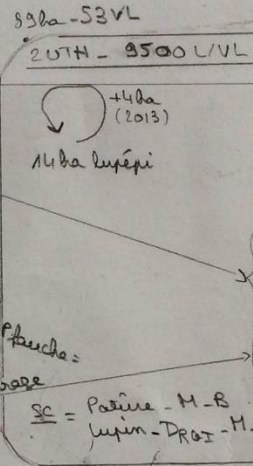 89ha - 53VL
2UTH - 9500L/VL
+4ha
(2013)
14ha lupépi
fauche =
SC = Pature - M - B
lupin - DRGI - M -